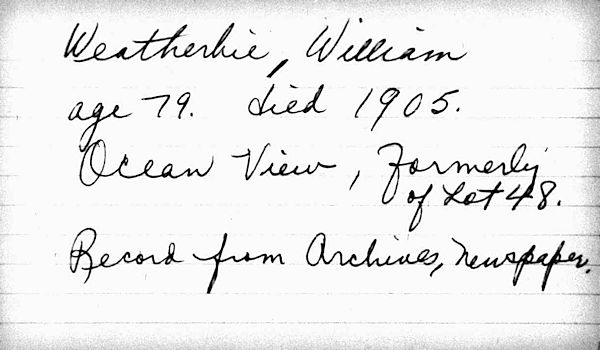 Weatherbie, William
age 79. died 1905.
Ocean View, Formerly
of Lot 48.
Record from Archives, newspaper.